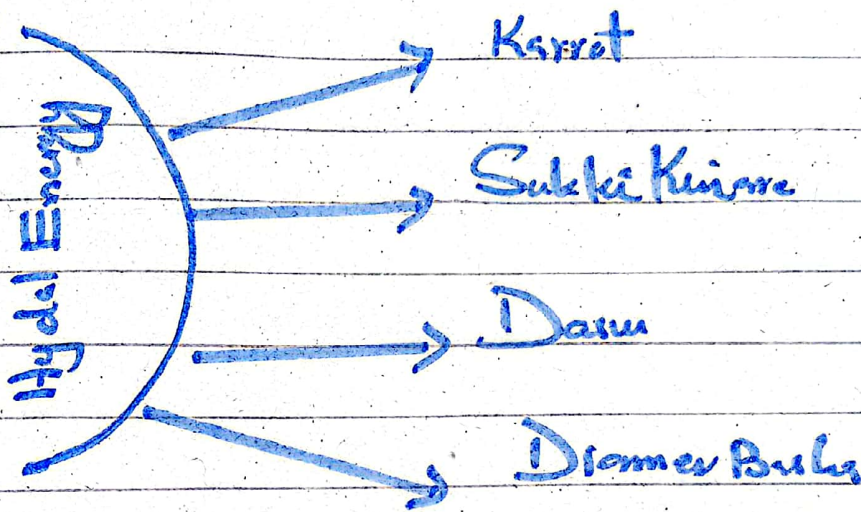 Hydal Energy
Karrot
Sukki Kinare
Dasu
Diammer Basha